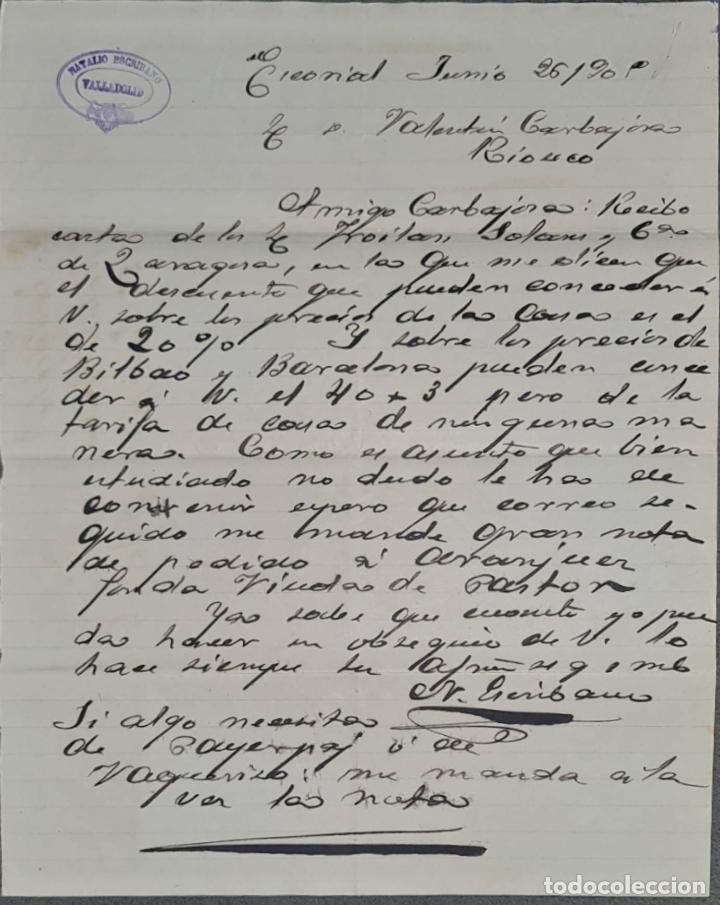 NATALIO ESCRIBANO
VALLADOLID
Escorial Junio 26/90
Valentin Carbajosa
Rioseco
Amigo Carbajosa: Recibo
carta de los Troilan Solans y Cia
de Zaragoza, en la que me dicen que
el descuento que pueden conceder á
V. sobre los precios de las Casa es el
de 20 % Y sobre los precios de
Bilbao y Barcelona pueden conce
der á V. el 40 + 3 pero de la
tarifa de casa de ninguna ma
nera. Como es asunto que bien
estudiado no dudo le ha de
convenir espero que correo se-
guido me mande gran nota
de pedido á Aranjuez
fonda Viuda de Pastor
Ya sabe que cuanto yo pue
da hacer en obsequio de V. lo
hace siempre su
N. Escribano
Si algo necesita
de ó de
me manda á la
vez la nota
todocoleccion